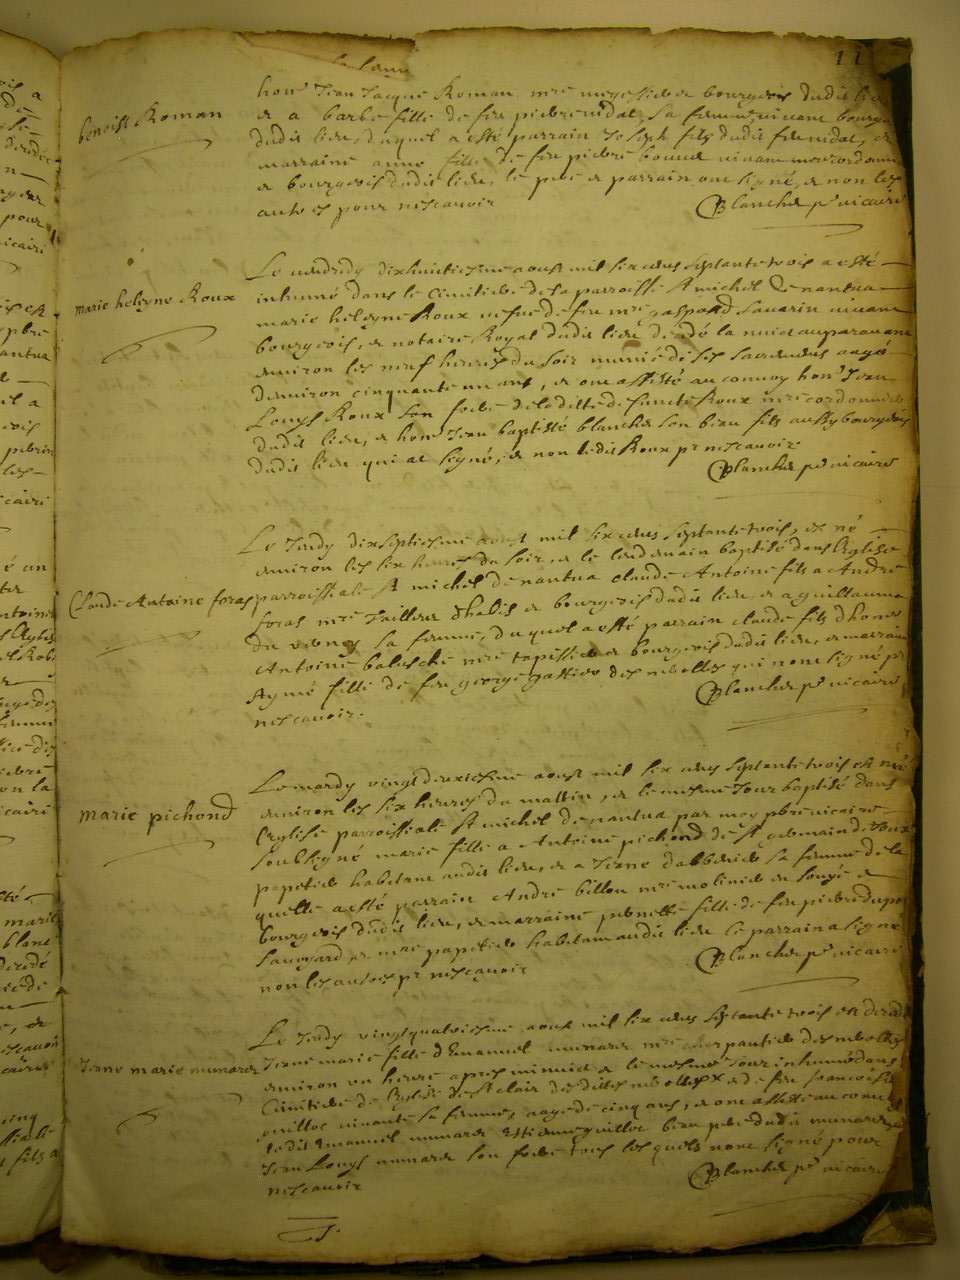 11
benoist Roman
hon. Jean Jacque Roman, mre megissier bourgeois dudit
et a barbe fille de feu pierre vidal sa femme vivant bourg
dudit lieu, duquel a esté parrain Joseph fils dudit feu vidal, et
marraine anne fille de feu pierre vivant mre cordonnier
et bourgeois dudit lieu, le pere et parrain ont signé, et non les
autres pour nescavoir
Blanchet pre vicaire
marie heleyne Roux
Le vendredy dixhuictiesme aoust mil six cens septante trois a esté
inhumé dans le Cimitiere de la parroisse St michel de nantua
marie heleyne Roux vefve de feu mre gaspard Savarin vivant
bourgeois, et notaire Royal dudit lieu decedé la nuict auparavant
environ les neuf heures du soir munie de ses sacremens aagé
denviron cinquante un ans, et ont assisté au convoy hon. Jean
Louys Roux son frere de la ditte defuncte Roux mre cordonnier
dudit lieu, et hon. Jean baptiste blanchet son beau fils aussy bourgeois
dudit lieu qui at signé, et non ledit Roux pr nescavoir
Blanchet pre vicaire
Claude Antoine foras
Le Jeudy dixseptiesme aoust mil six cens septante trois, est né
environ les six heures du soir, et le lendemain baptisé dans leglise
parroissiale St michel de nantua claude Antoine fils a André
foras mre Tailleur dhabis et bourgeois dudit lieu, et a guillauma
sa femme, duquel a esté parrain claude fils dhonor
Antoine mre tapissier et bourgeois dudit lieu, et marraine
Aymé fille de feu george des neolles qui nont signé pr
nescavoir.
Blanchet pre vicaire
marie pichond
Le mardy vingtdeuxiesme aoust mil six cens septante trois est né
environ les six heures du mattin, et le mesme Jour baptisé dans
leglise parroissiale St michel de nantua par moy pbre vicaire
soubsigné marie fille a Antoine pichond de St germain de Joux
papetier habitant audit lieu, et a Jeane sa femme de la
quelle a esté parrain André billon mre molinier en soye et
bourgeois dudit lieu, et marraine pernette fille de feu pierre
Savoyard et mre papetier habitant audit lieu le parrain a signé
non les autres pr nescavoir
Blanchet pre vicaire
Jeane marie munarer
Le Jeudy vingtquatriesme aoust mil six cens septante trois est decedé
Jeane marie fille dEmanuel munarer mre charpantier des neolles
environ un heure apres minuict et le mesme Jour inhumé dans
Cimitiere de leglise de St clair des dittes neolles et de feu francoise
guilloz vivante sa femme, aagé de cinq ans, et ont assisté au convoy
ledit Emanuel munarer Estienne guilloz beau pere dudit munarer
Jean Louys munarer son frere tous lesquels nont signé pour
nescavoir
Blanchet pre vicaire